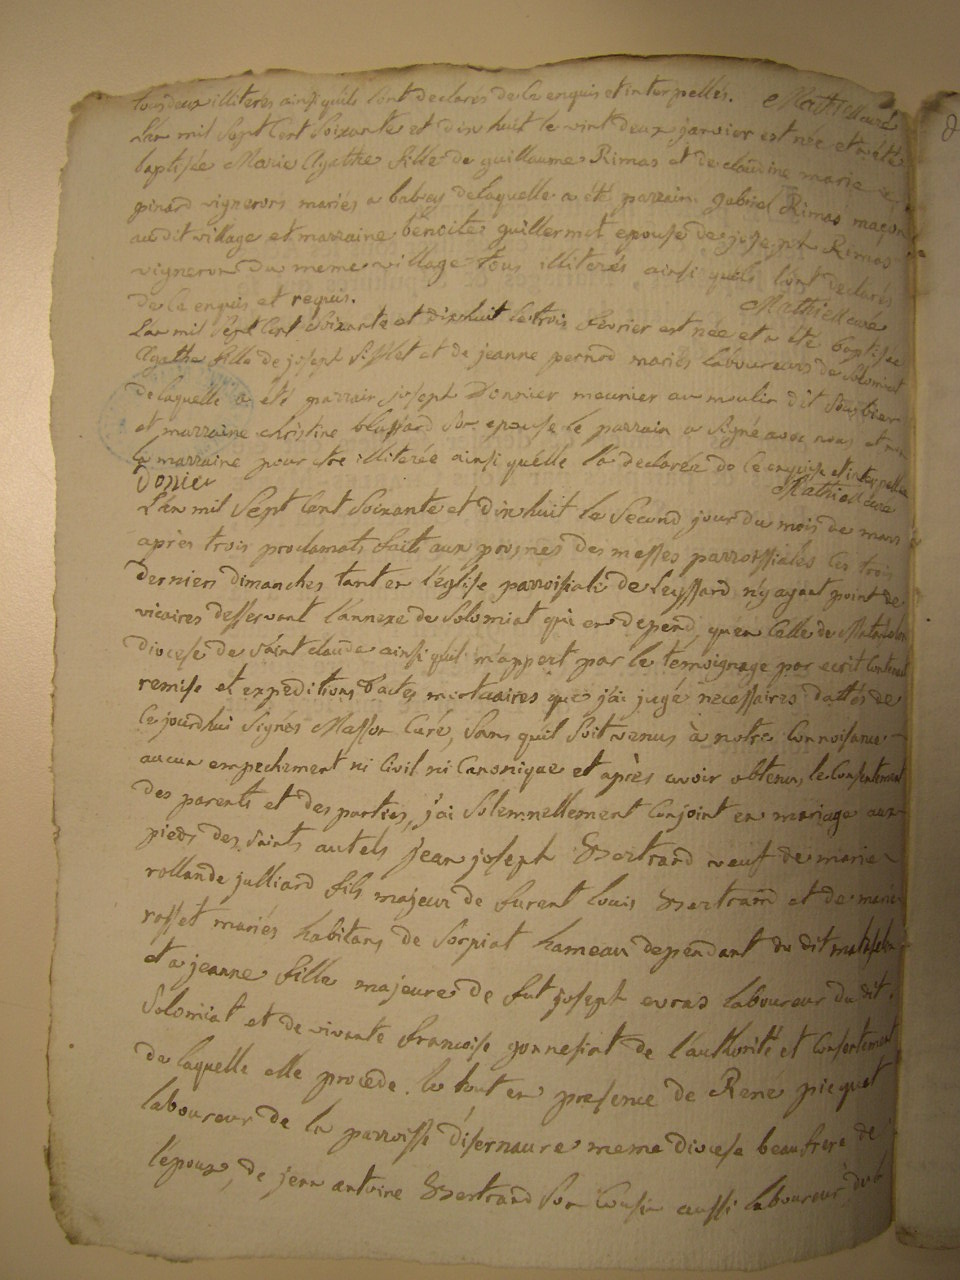 tous deux illiterés ainsi quils l'ont declarés de ce enquis et interpellés. Mathieu curé
L'an mil sept cent soixante et dix huit le vint deux janvier est née et a été
baptisée Marie Agathe fille de guillaume Rimas et de claudine marie
pinard vignerons mariés a balvay delaquelle a été parrain gabriel Rimas maçon
au dit village et marraine benoite guillermet epouse de joseph Rimas
vigneron du meme village tous illiterés ainsi quils l'ont declarés
de ce enquis et requis. Mathieu curé
L'an mil sept cent soixante et dix huit le trois fevrier est née et a été baptisée
Agathe fille de joseph et de jeanne pernod mariés laboureurs de Solomiat
delaquelle a été parrain joseph Donnier meunier au moulin dit
et marraine christine son epouse le parrain a signé avec nous et non
la marraine pour etre illiterée ainsi quelle l'a declarée de ce enquise et interpellée
Donier Mathieu curé
L'an mil sept cent soixante et dix huit le second jour du mois de mars
après trois proclamats faits aux prosnes des messes parroissiales les trois
derniers dimanches tant en l'église parroissiale de Leyssard n'y ayant point de
vicaires desservant l'annexe de Solomiat qui en depend, qu'en celle de Matafelon
diocese de saint claude ainsi qu'il m'appert par le temoignage par ecrit contenant
remise et expeditions d'actes mortuaires que j'ai jugé necessaires dattés de
ce jourdhui signés Masson curé, sans quil soit venus à notre connoisance
aucun empechement ni civil ni canonique et après avoir obtenus le consentement
des parents et des parties, j'ai solemnellement conjoint en mariage aux
pieds des saints autels jean joseph Bertrand veuf de marie
rollande julliard fils majeur de laurent louis Bertrand et de marie
rosset mariés habitans de Corpiat hameau dependant du dit matafelon
et a jeanne fille majeure de fut joseph evras laboureur du dit
Solomiat et de vivante francoise gonnessiat de l'authorité et consentement
de laquelle elle procede. le tout en presence de René picquet
laboureur de la parroisse d'isernaure meme diocese beaufrere de
l'epoux, de jean antoine Bertrand son cousin aussi laboureur dud